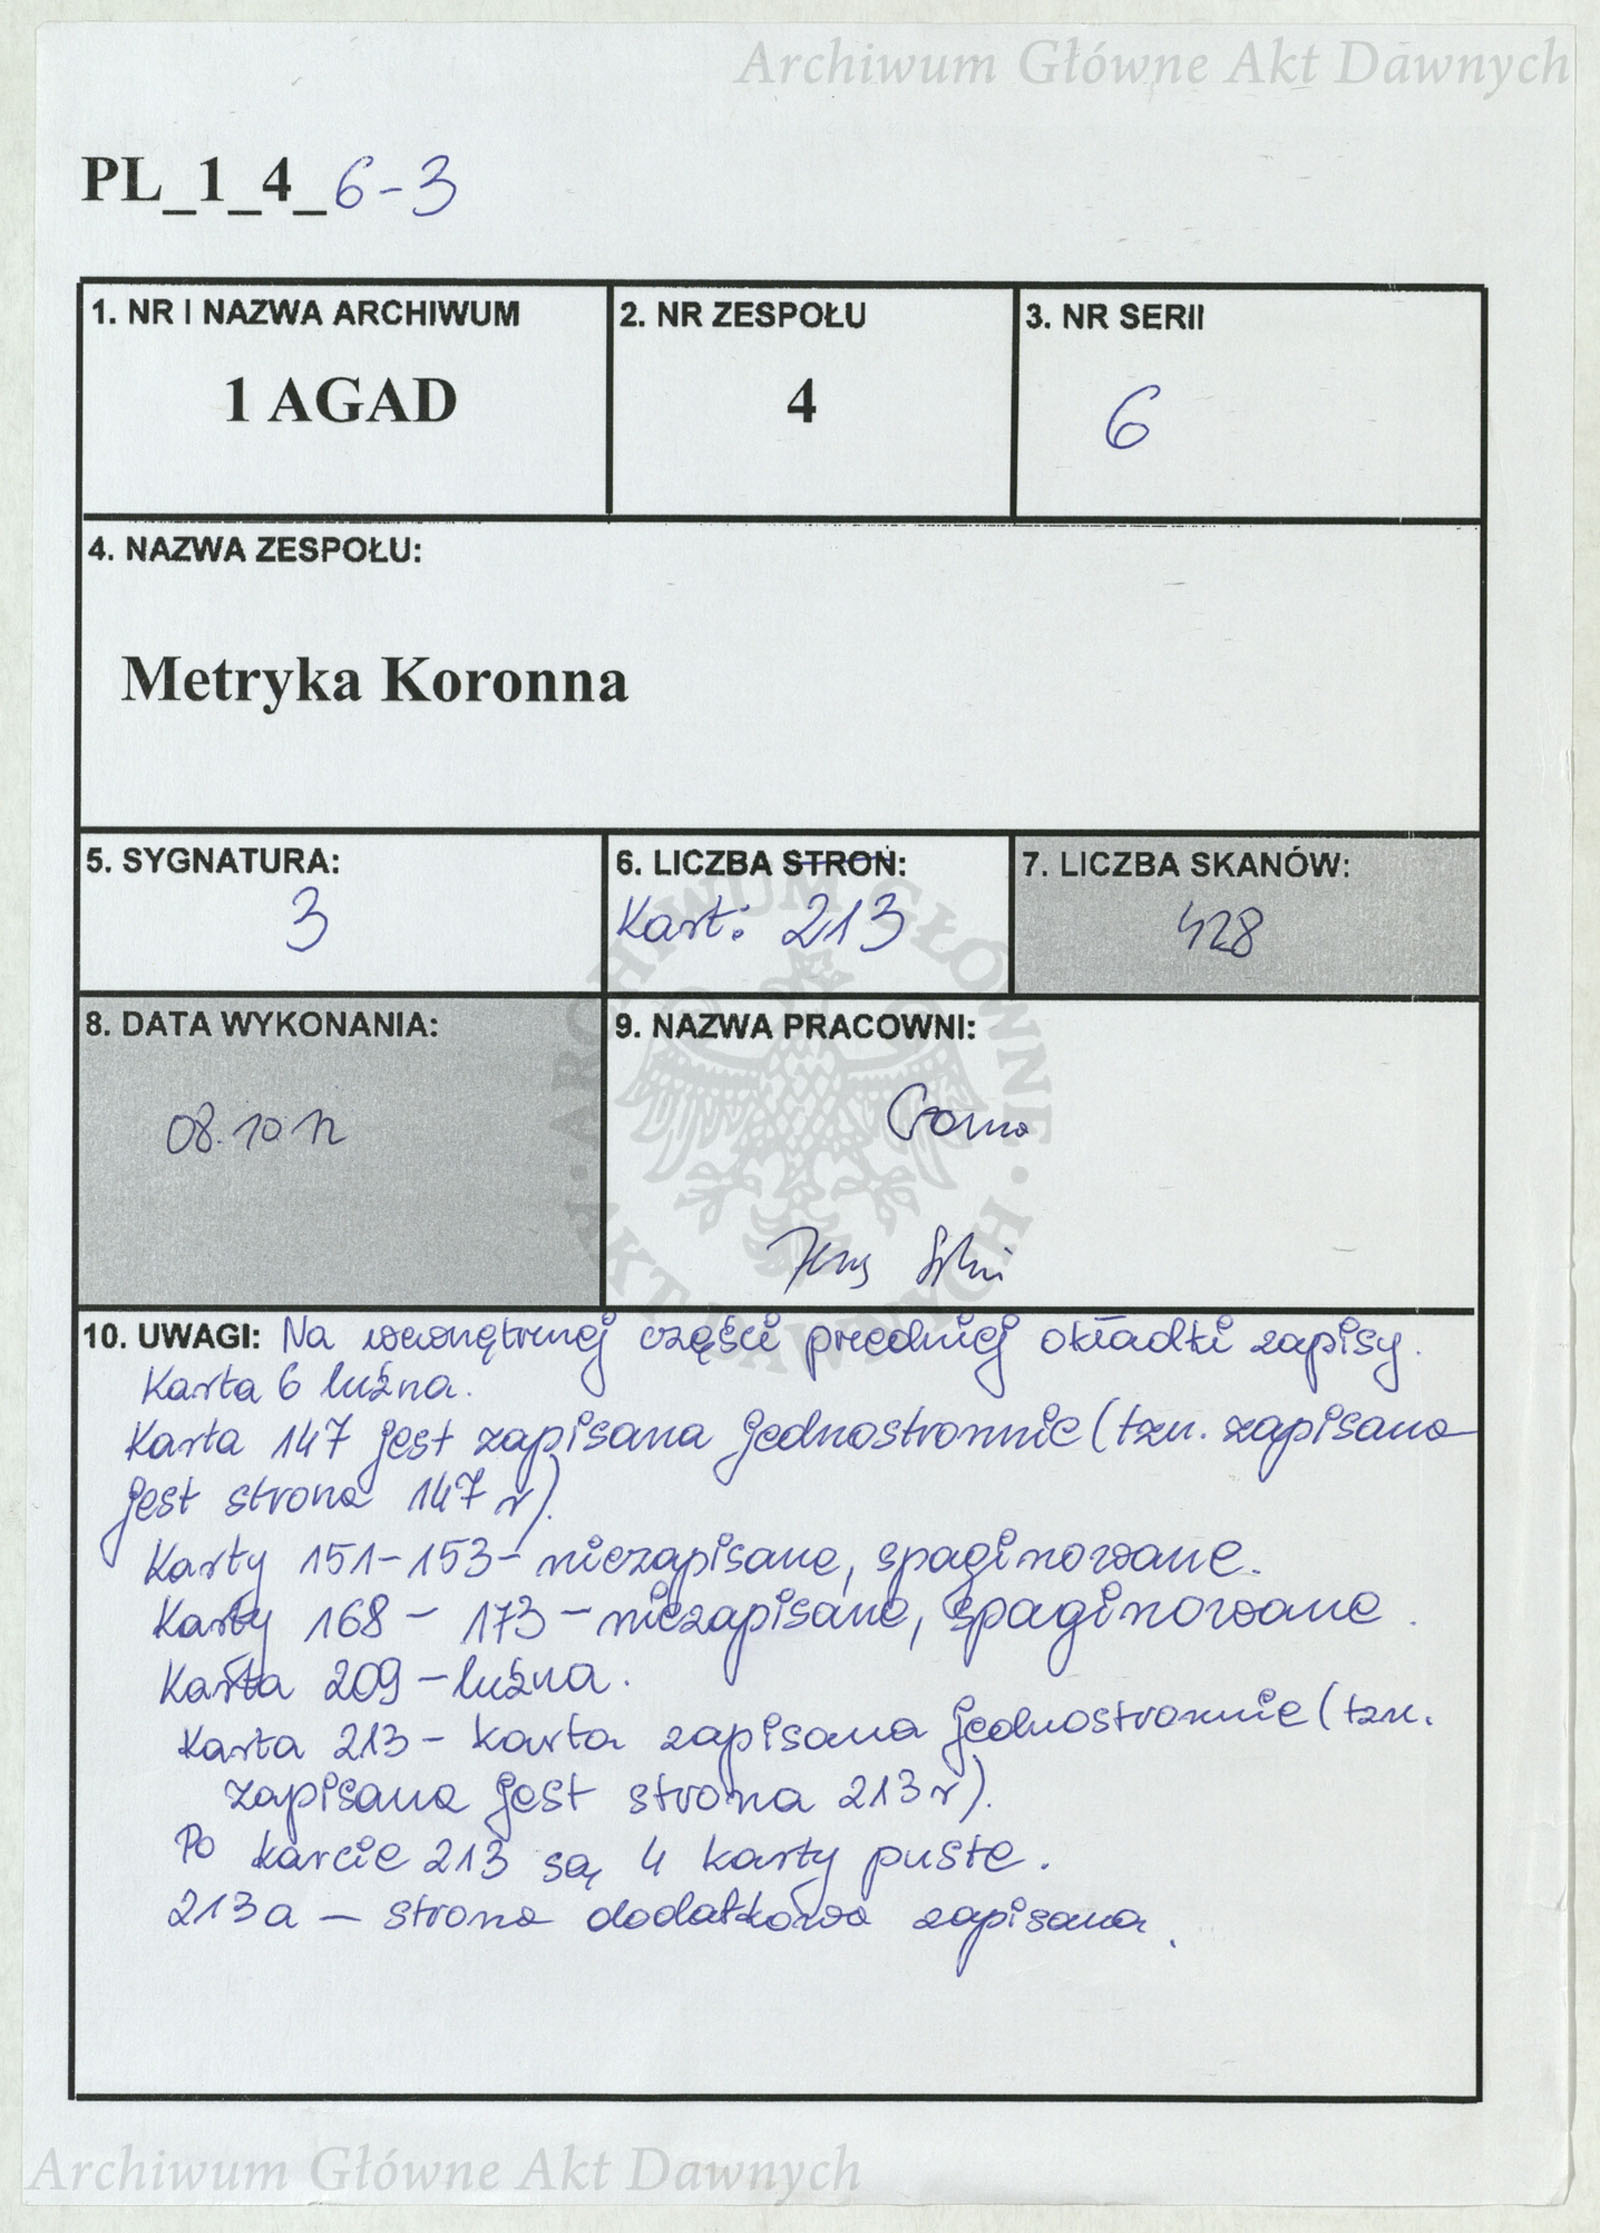 Archiwum Główne Akt Dawnych
PL_1_4_6-3
1. NR I NAZWA ARCHIWUM
1 AGAD
2. NR ZESPOŁU
4
3. NR SERII
6
4. NAZWA ZESPOŁU:
Metryka Koronna
5. SYGNATURA:
3
6. LICZBA STRON:
Kart: 213
7. LICZBA SKANÓW:
428
8. DATA WYKONANIA:
08.10 12
9. NAZWA PRACOWNI:
ARCHIWUM GŁÓWNE · AKT DAWNYCH ·
10. UWAGI: Na wewnętrznej części przedniej okładki zapisy.
Karta 6 luźna.
Karta 147 jest zapisana jednostronnie (tzn. zapisana
jest strona 147 r).
Karty 151-153- niezapisane, spaginowane.
Karty 168 - 173 - niezapisane, spaginowane.
Karta 209 - luźna.
Karta 213 - karta zapisana jednostronnie (tzn.
zapisana jest strona 213 r).
Po karcie 213 są 4 karty puste.
213a - strona dodatkowa zapisana.
Archiwum Główne Akt Dawnych